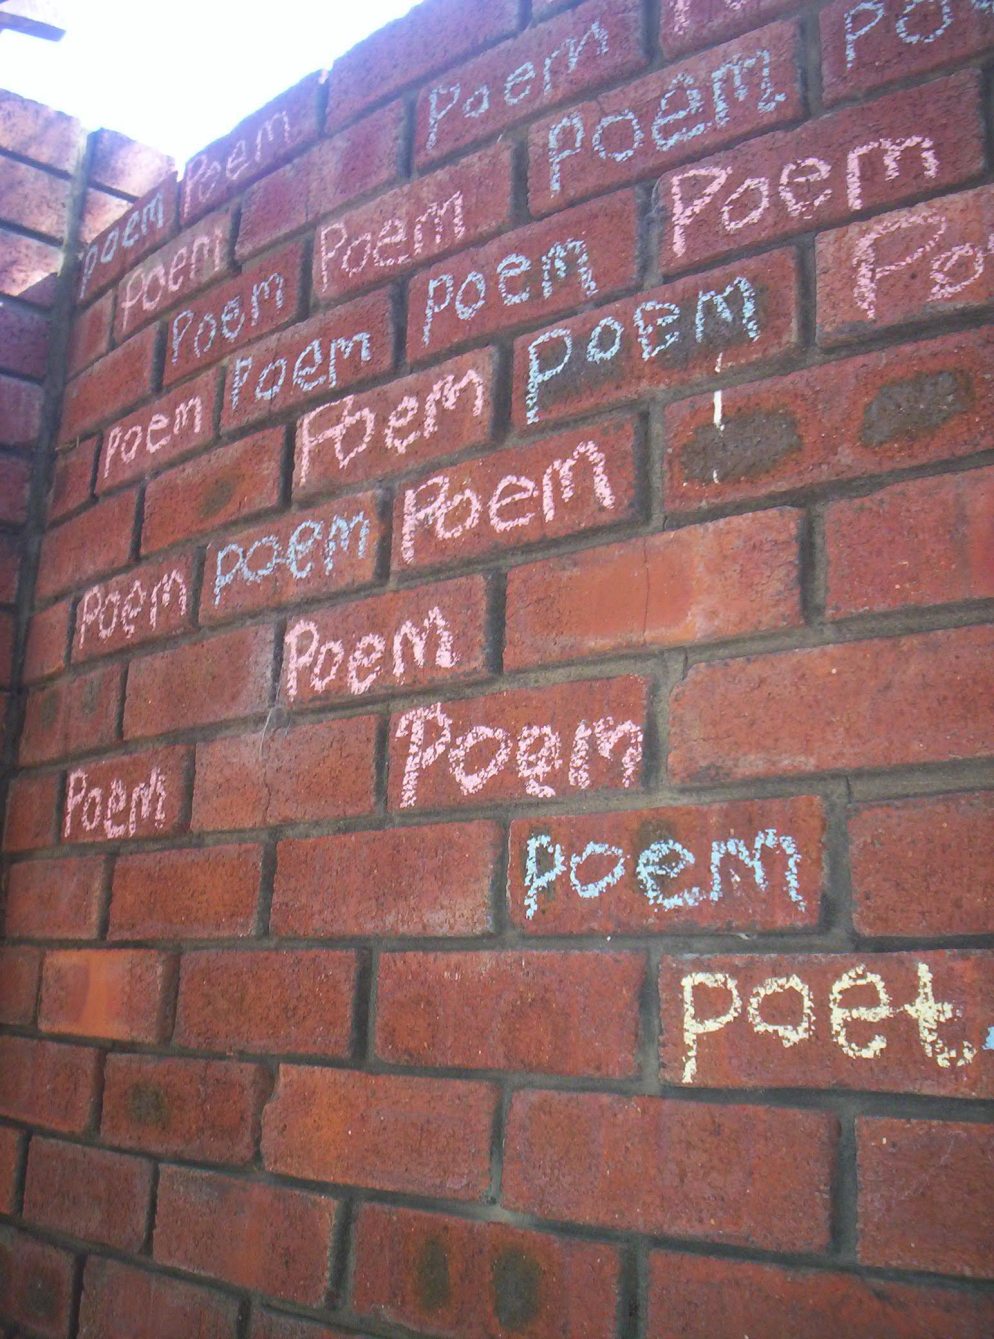 poem Poem
Poem poem
Poem Poem poem po
Poem Poem poem Poem
Poem poem Po
Poem poem Poem
Poem
Poem Poem
poem
poet.